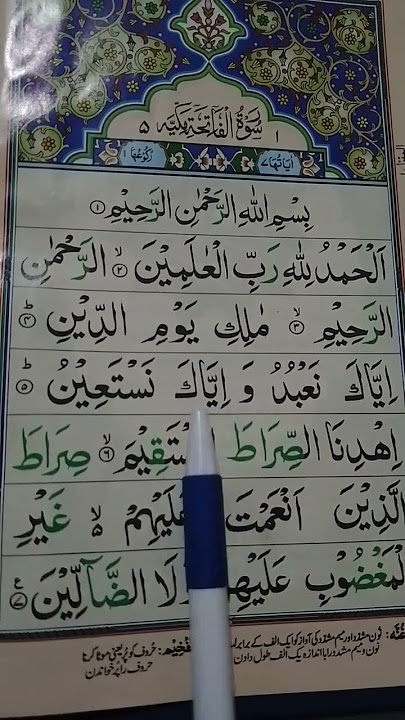 سُوْرَةُ الْفَاتِحَةِ مَكِّيَّةٌ ٥
اٰيَاتُهَا ٧ رُكُوْعُهَا ١
بِسْمِ اللهِ الرَّحْمٰنِ الرَّحِيْمِ ١
اَلْحَمْدُ لِلّٰهِ رَبِّ الْعٰلَمِيْنَ ٢ الرَّحْمٰنِ
الرَّحِيْمِ ٣ مٰلِكِ يَوْمِ الدِّيْنِ ٤
اِيَّاكَ نَعْبُدُ وَ اِيَّاكَ نَسْتَعِيْنُ ٥
اِهْدِنَا الصِّرَاطَ ٦ صِرَاطَ
الَّذِيْنَ اَنْعَمْتَ عَلَيْهِمْ ۵ غَيْرِ
الْمَغْضُوْبِ عَلَيْهِمْ وَلَا الضَّآلِّيْنَ ٧
غُنّه: نون مشدد اور میم مشدد کی آواز کو ایک الف کے برابر
نون و میم مشدد را با اندازه یک الف طول دادن
تفخیم: حروف کو پُر یعنی موٹا کرنا
حروف را پر خواندن